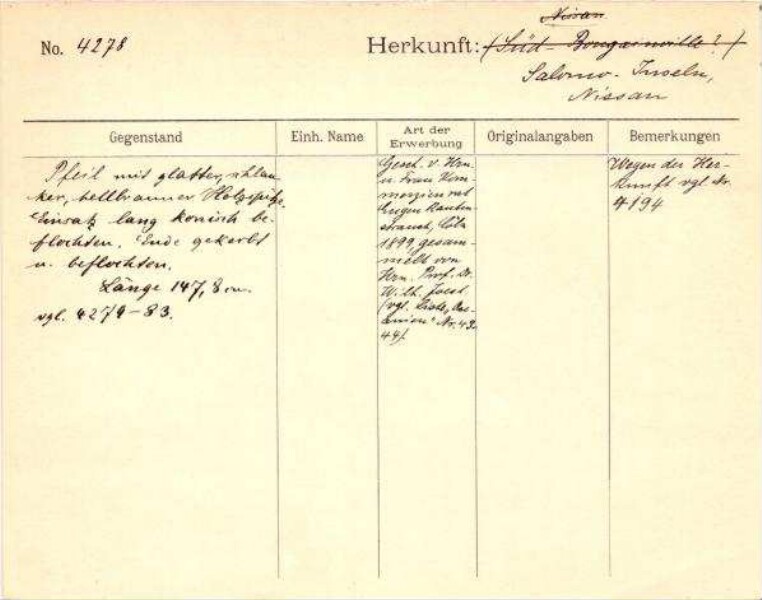 Nissan
No. 4278
Herkunft: (Süd-Bougainville?)
Salomo-Inseln,
Nissan
Gegenstand
Einh. Name
Art der
Erwerbung
Originalangaben
Bemerkungen
Pfeil mit glatter, schlan
ker, hellbrauner Holzspitze.
Einsatz lang konisch be-
flochten. Ende gekerbt
u. beflochten.
Länge 147,8 cm.
vgl. 4279-83.
Gesch. v. Hrn.
u. Frau Kom-
merzienrat
Eugen Rauten-
strauch, Cöln
1899, gesam-
melt von
Hrn. Prof. Dr.
Wilh. Joest
(vgl. Liste, Oce-
anien" Nr. 43.
44).
Wegen der Her-
kunft vgl. Nr.
4194